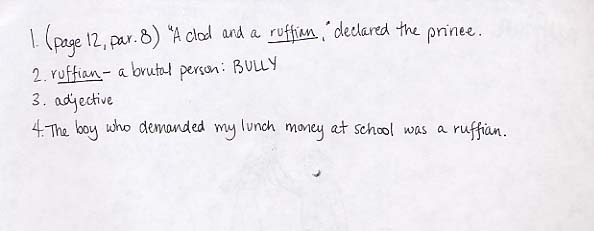 1. (page 12, par. 8) "A clod and a ruffian," declared the prince.
2. ruffian - a brutal person: BULLY
3. adjective
4. The boy who demanded my lunch money at school was a ruffian.